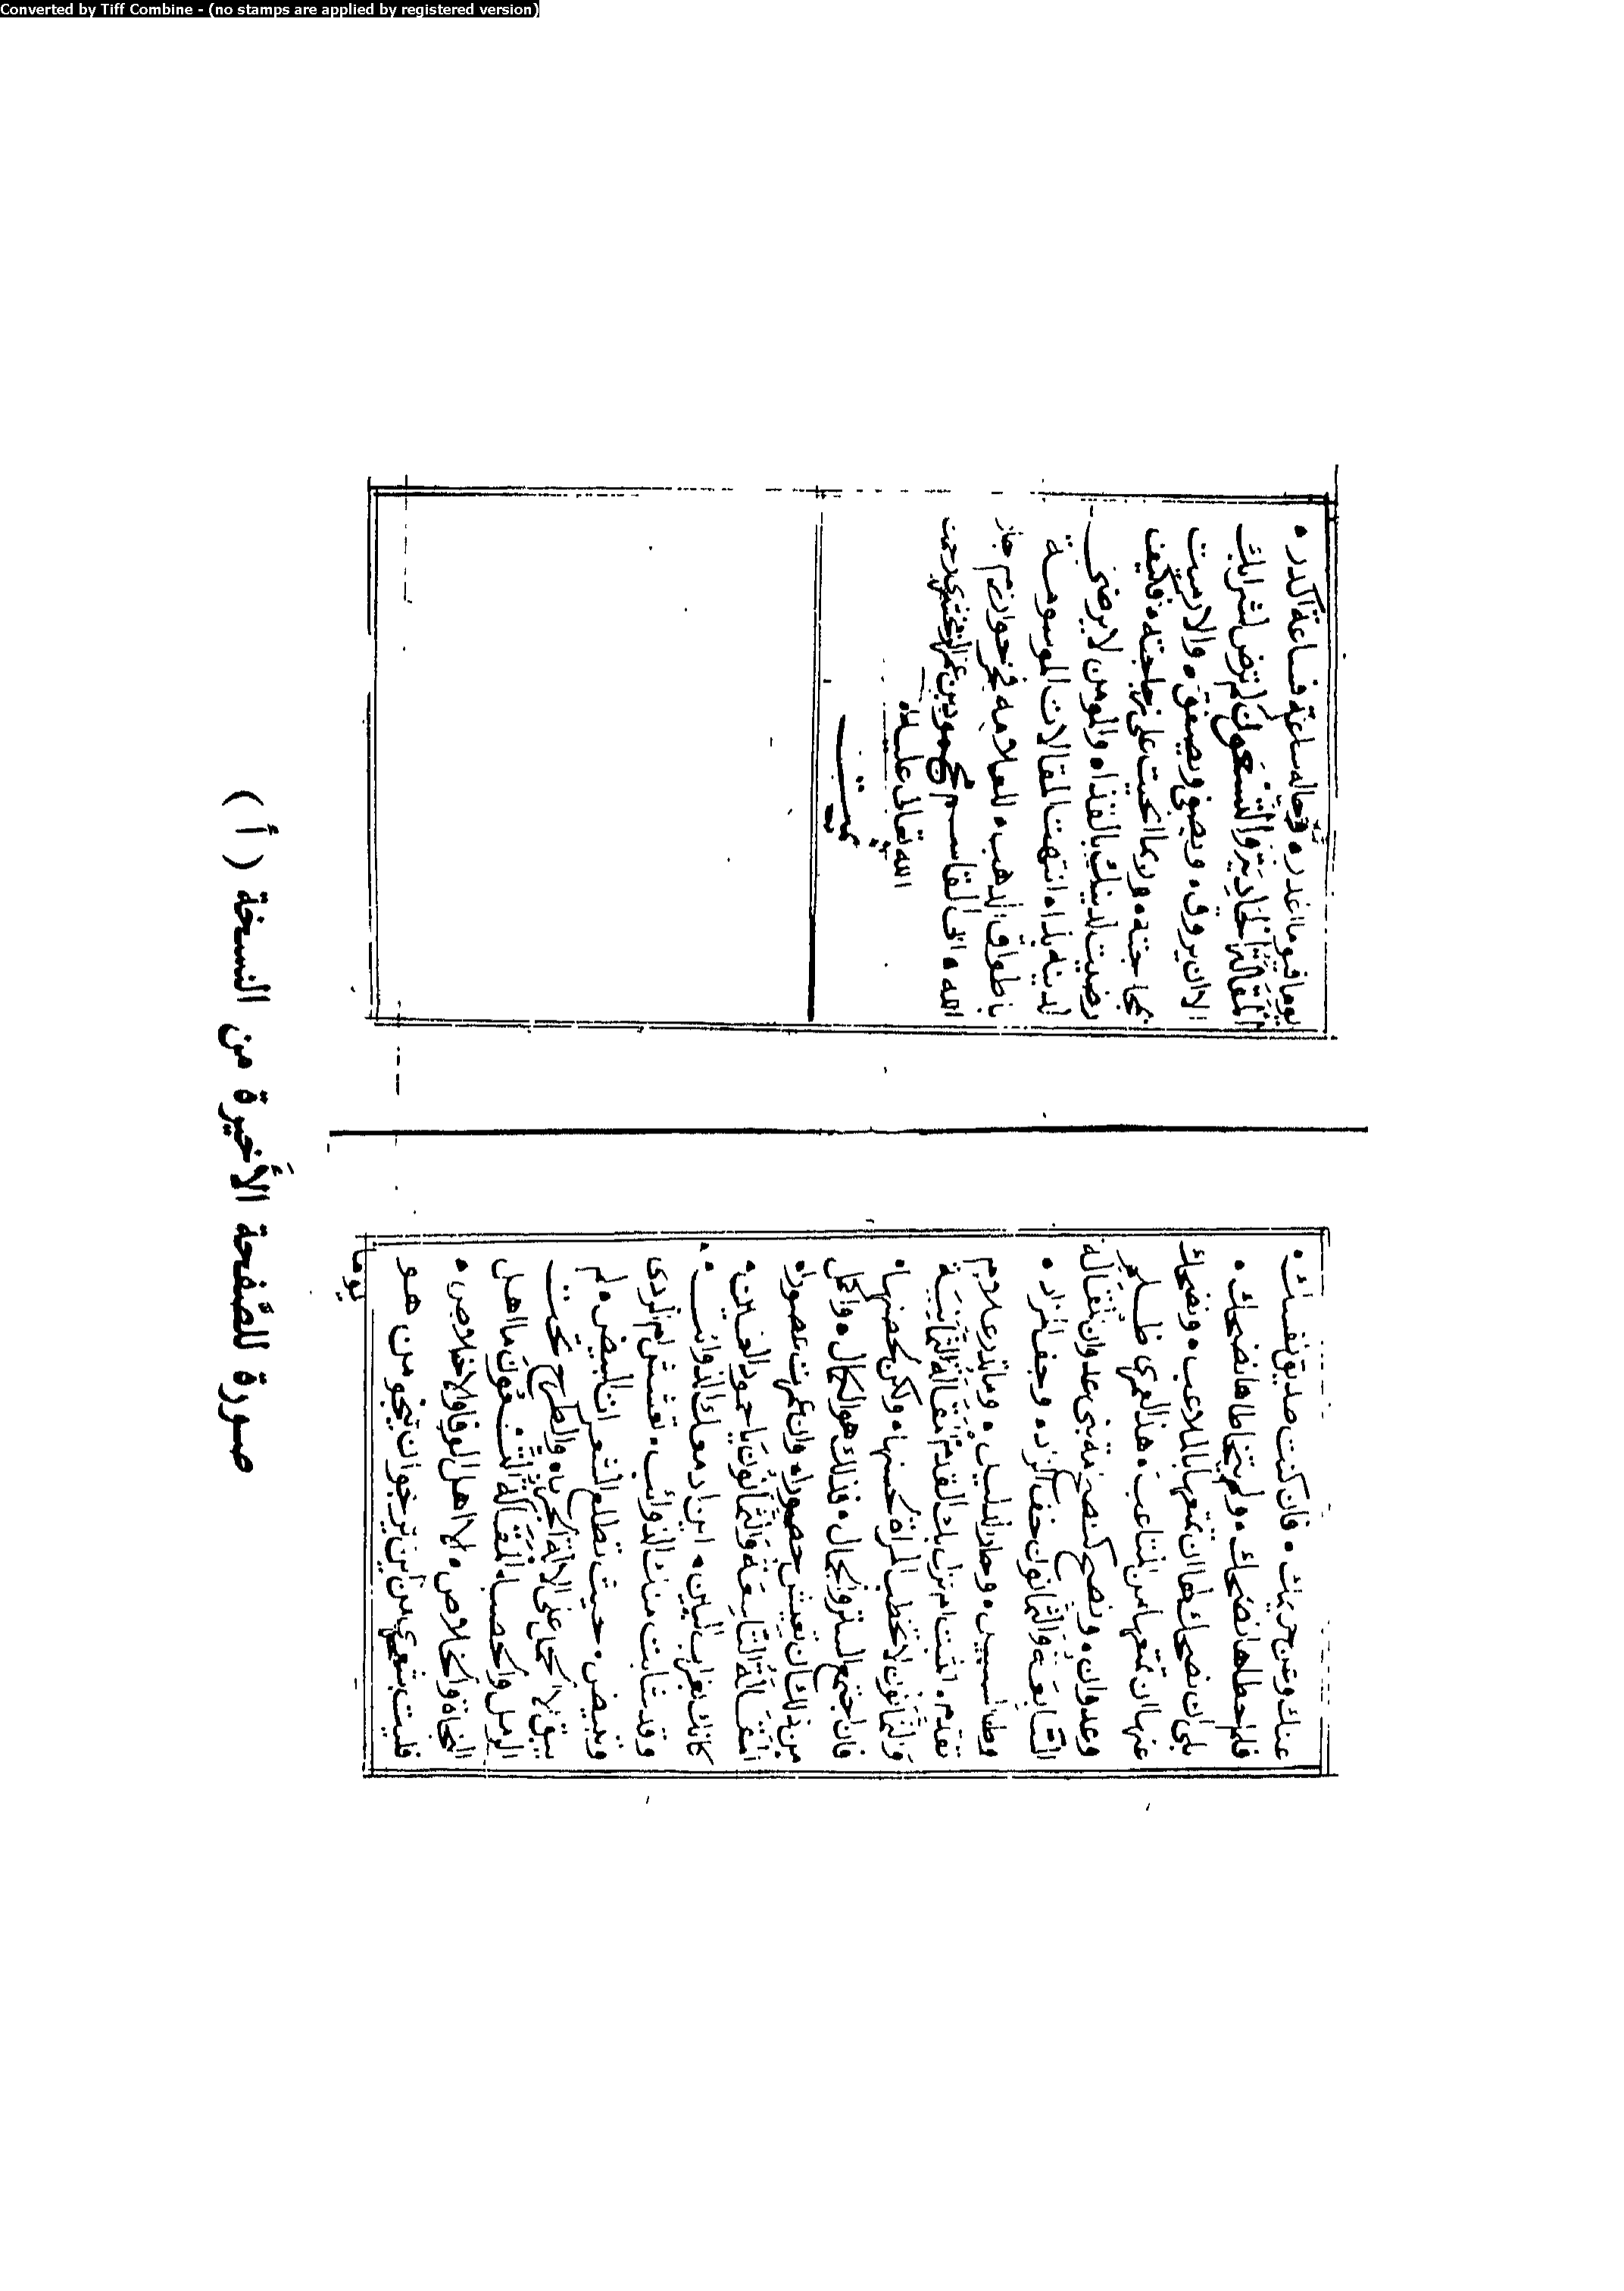 Converted by Tiff Combine - (no stamps are applied by registered version)
عنك وعن حربك • فان كنت صديق نفسك •
فلم حطاها نضحك • ولم تخاطاها نضحك •
بلى ان نضحك لها ان تمتعها بالملاعب • ونضحك
عنها ان تمنعها من المتاعب • هذا لعمري ظلم
وعدوان • ونصح كنصح
السابعة والثمانون خف الزاد • وجف المزاد •
وطال السبيل • وحار الدليل • وما تدري علام
تقدم • اثبت ام تزل بك القدم المقالة الثامنة
والثمانون لا تخطب المراة لحسنها • ولكن لحصنها •
فان اجتمع الستر والجمال • فذلك هو الكمال • واكمل
من ذلك ان تعيش حصورا • وان عمرت عصورا •
المقالة التاسعة والثمانون يا جمود العين •
كانك بغراب البين •
وقد شابت منك الذوائب •
وتبيض • حيث تطلع الشعرات البيض • لم
يبق لا
الرمل والحصا • المقالة التسعون ما اهل
النجاة والخلاص • الا اهل الوفا والاخلاص •
فليت شعري من اين يرجو ان ينجو من هو
يوما
يوما فيوما اغدر • وحاله ساعة فساعة اكدر •
المقالة الحادية والتسعون لم ترض لشرابك
الا ان يروق • ويصفى ويصفق • والا رميت
بزجاجته • وربما انحيت على
رضيت لدينك بالقذا • والمومن لا يرضى
لدينه بذا • انتهت المقالات الموسومة
باطواق الذهب • للعلامة فخر خوارزم جار
الله • ابى القاسم محمود بن عمر الزمخشري رحمة
الله تعالى عليه
تمت
صورة للصفحة الأخيرة من النسخة ( أ )